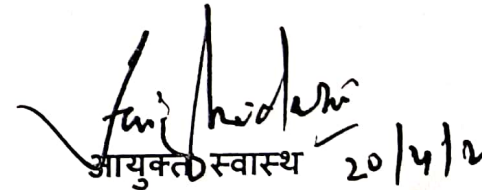 आयुक्त स्वास्थ
20/4/2